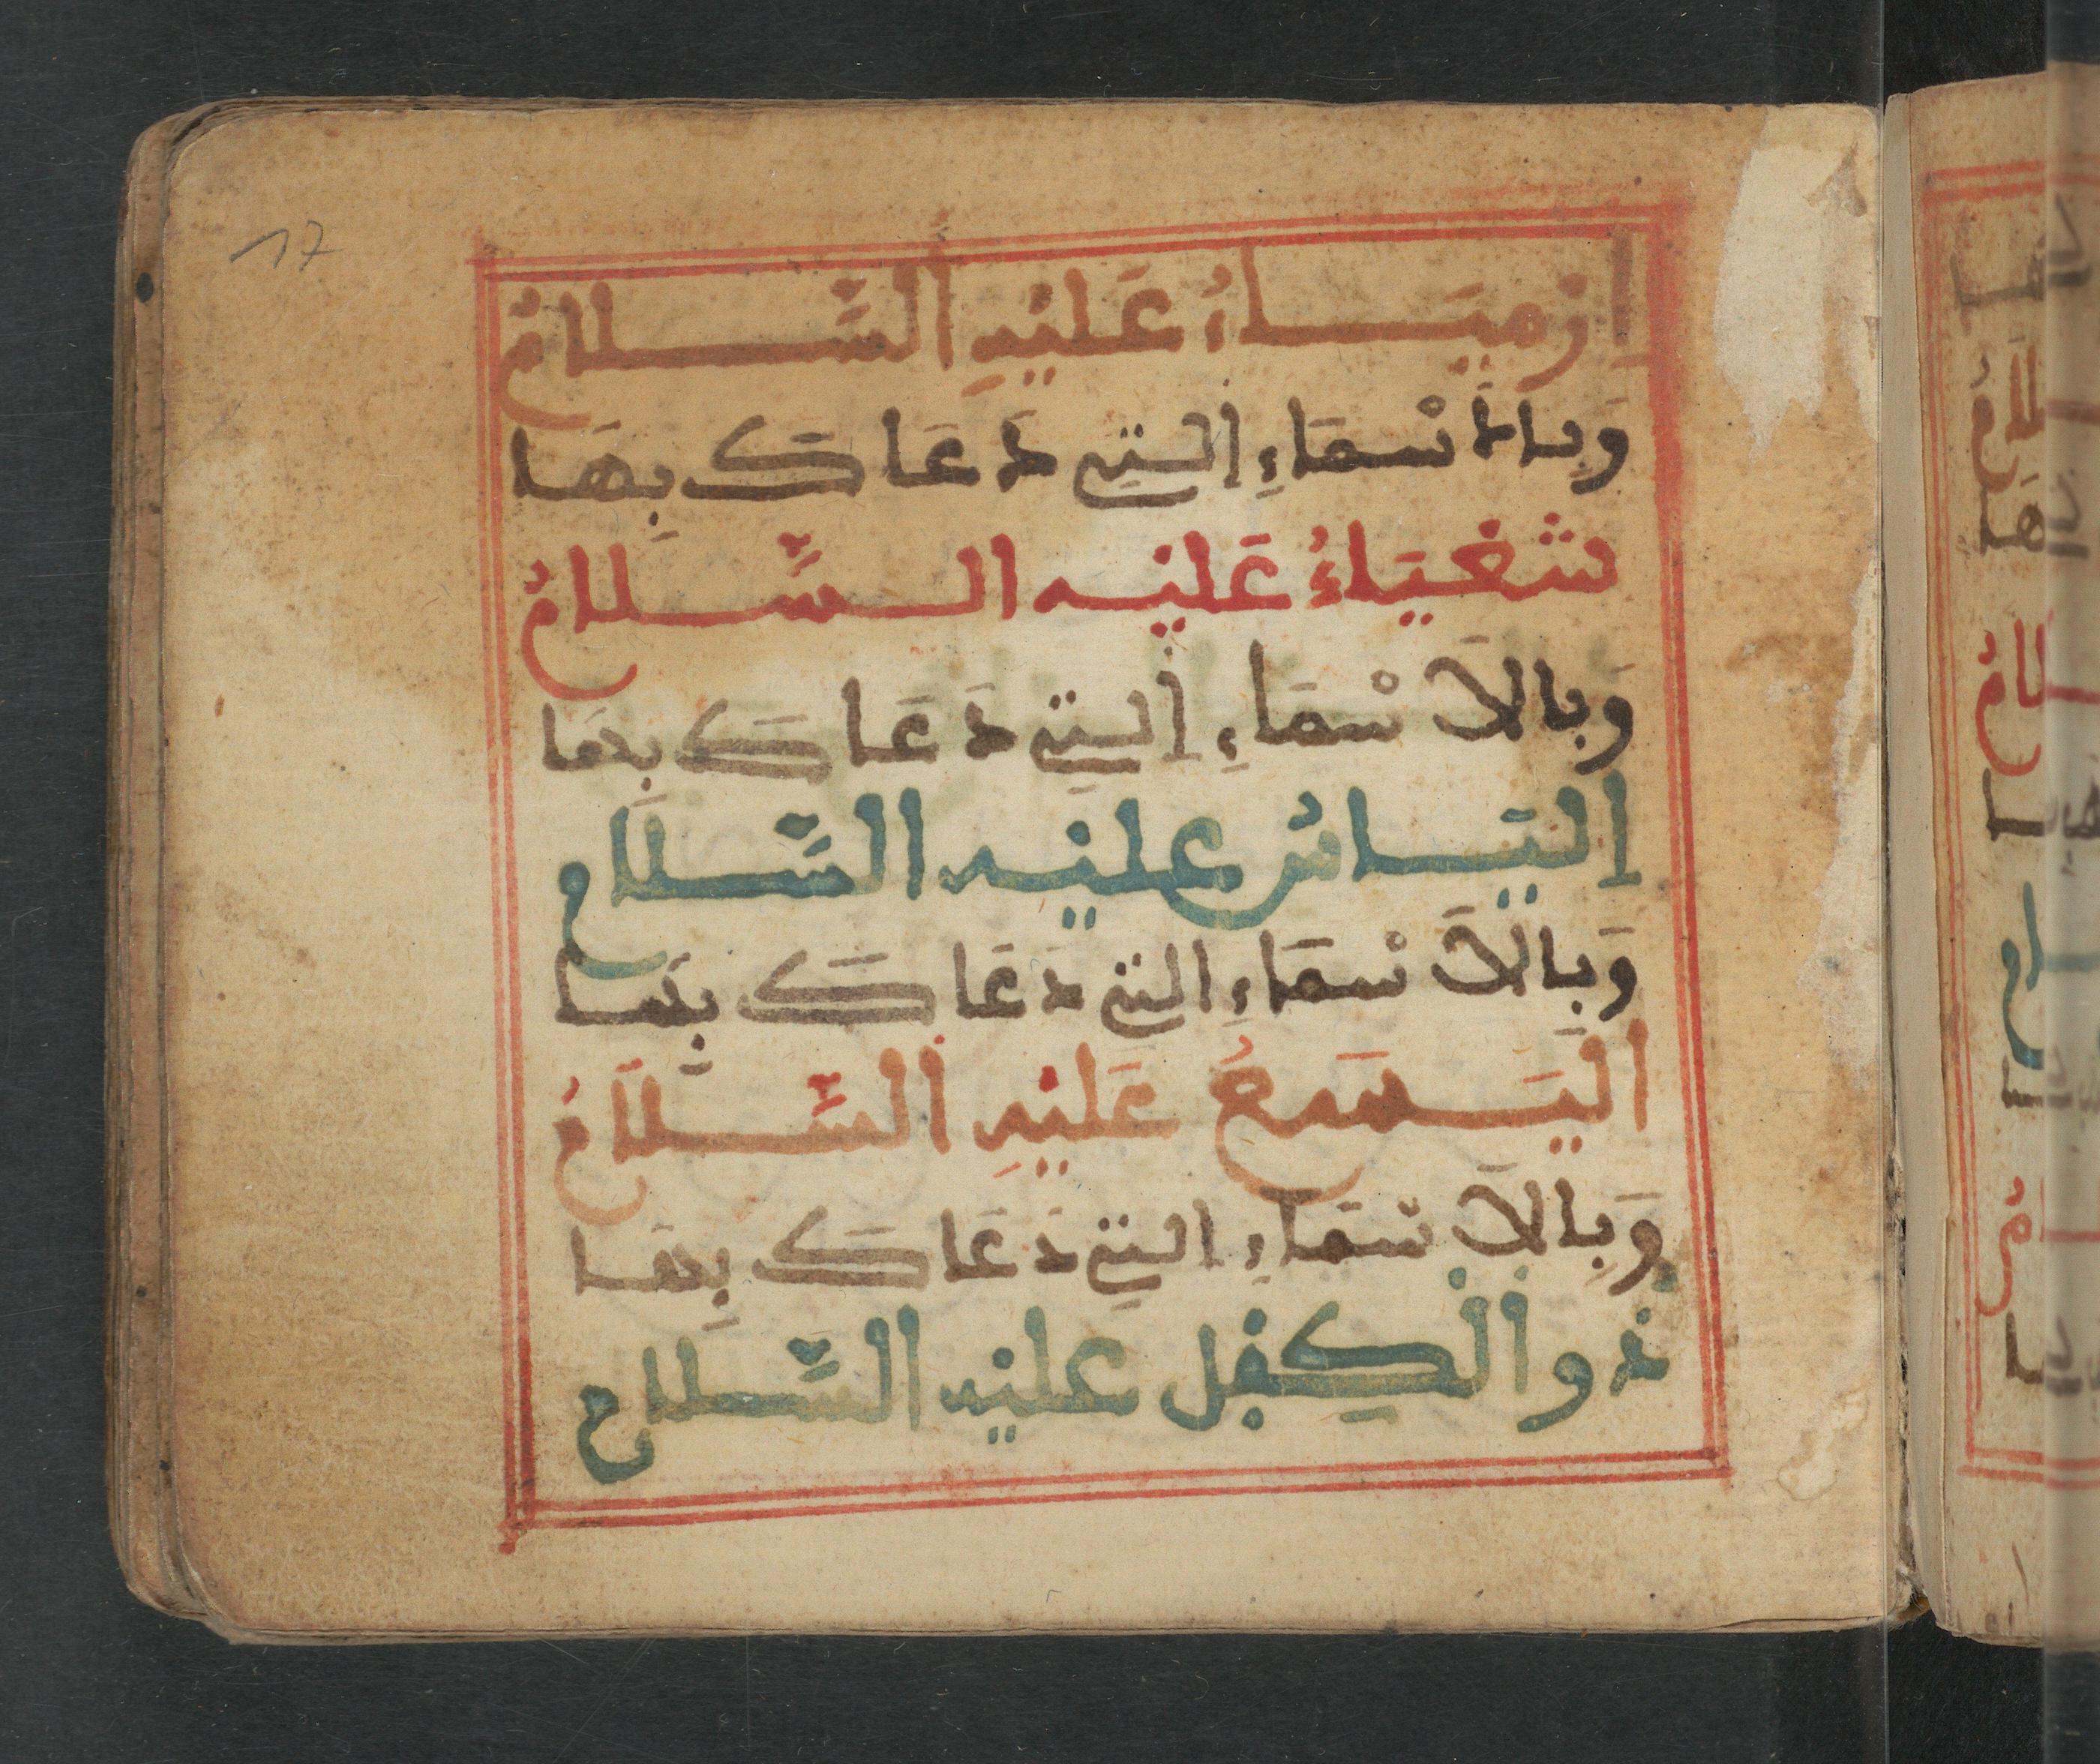 17
اِرْمِيَاءُ عَلَيْهِ السَّلَامُ
وَبِالْأَسْمَاءِ الَّتِي دَعَاكَ بِهَا
شَعْيَاءُ عَلَيْهِ السَّلَامُ
وَبِالْأَسْمَاءِ الَّتِي دَعَاكَ بِهَا
اِلْيَاسُ عَلَيْهِ السَّلَام
وَبِالْأَسْمَاءِ الَّتِي دَعَاكَ بِهَا
الْيَسَعُ عَلَيْهِ السَّلَامُ
وَبِالْأَسْمَاءِ الَّتِي دَعَاكَ بِهَا
ذُو الْكِفْلِ عَلَيْهِ السَّلَام